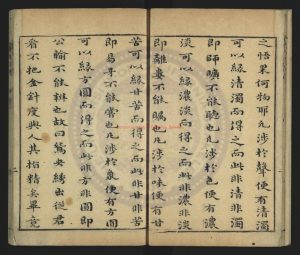 之悟果何物耶凡涉於聲便有清濁
可以緣清濁而得之而此非清非濁
即師曠不能聽也凡涉於色便有濃
淡可以緣濃淡而得之而此非濃非淡
即離婁不能矚也凡涉於味便有甘
苦可以緣甘苦而得之而此非甘非苦
即易牙不能嘗也凡涉於象便有方圓
可以緣方圓而得之而此非方非圓即
公輸不能辨也故曰鴛鴦綉出從君
看不把金針度與人其指精矣畢竟
二